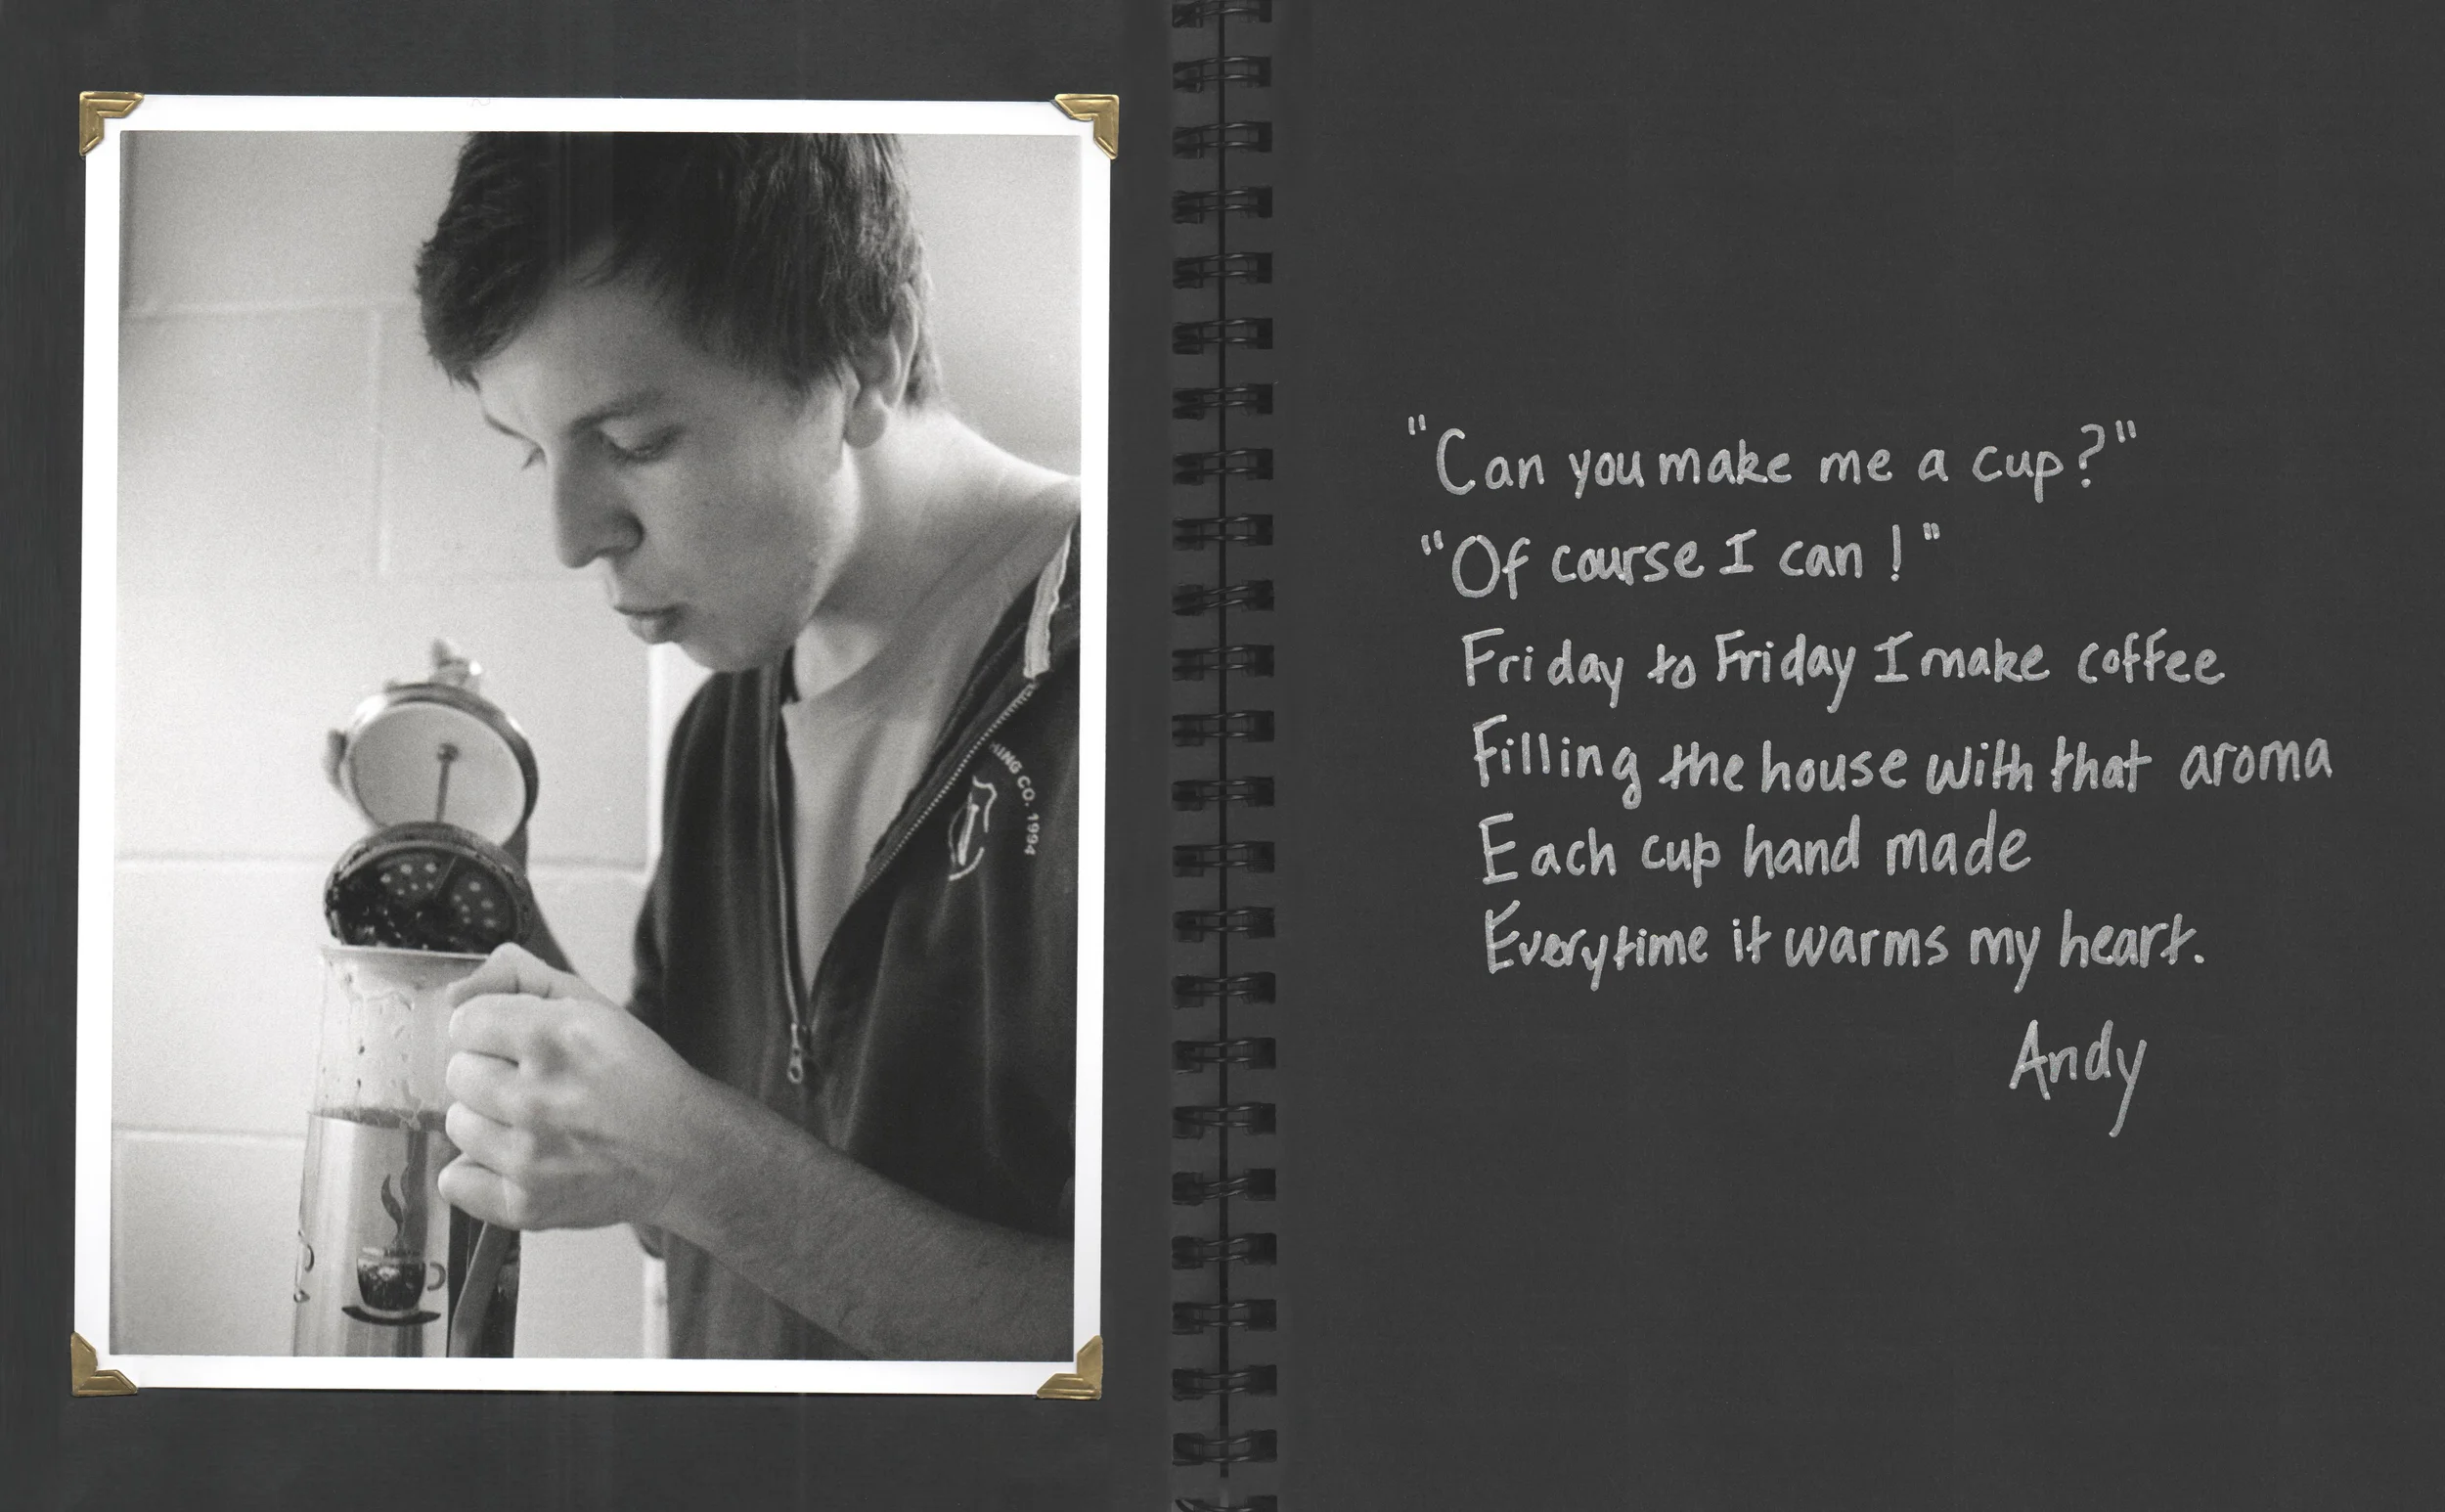 HING CO. 1994
"Can you make me a cup?"
"Of course I can!"
Friday to Friday I make coffee
Filling the house with that aroma
Each cup hand made
Everytime it warms my heart.
Andy